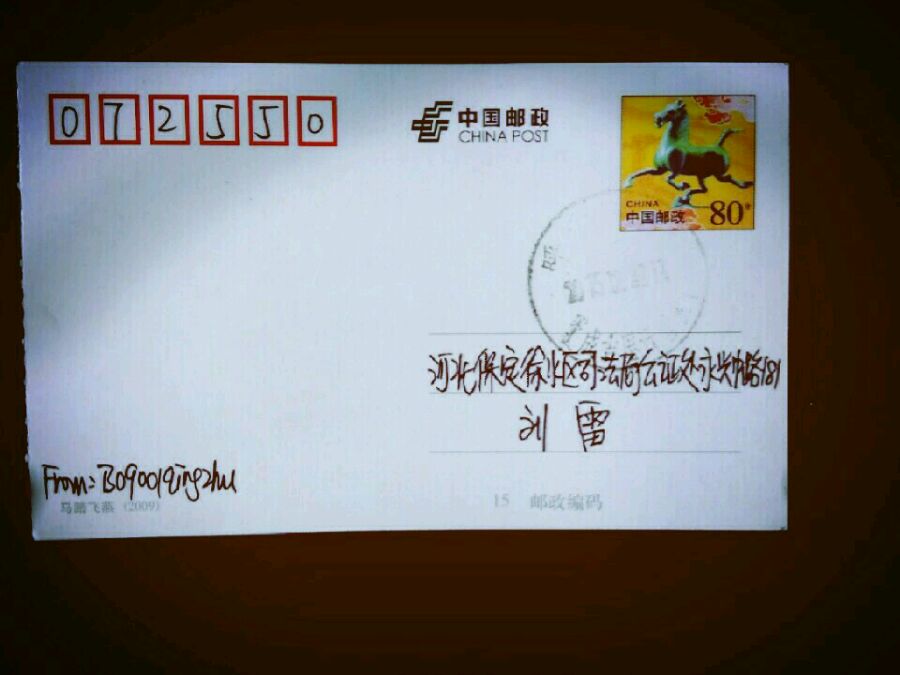 072550
中国邮政
CHINA POST
CHINA
中国邮政 80分
河北保定徐水区司法局公证处永兴中路181
刘雷
From: B09001qingzhu
马踏飞燕 (2009)
15 邮政编码